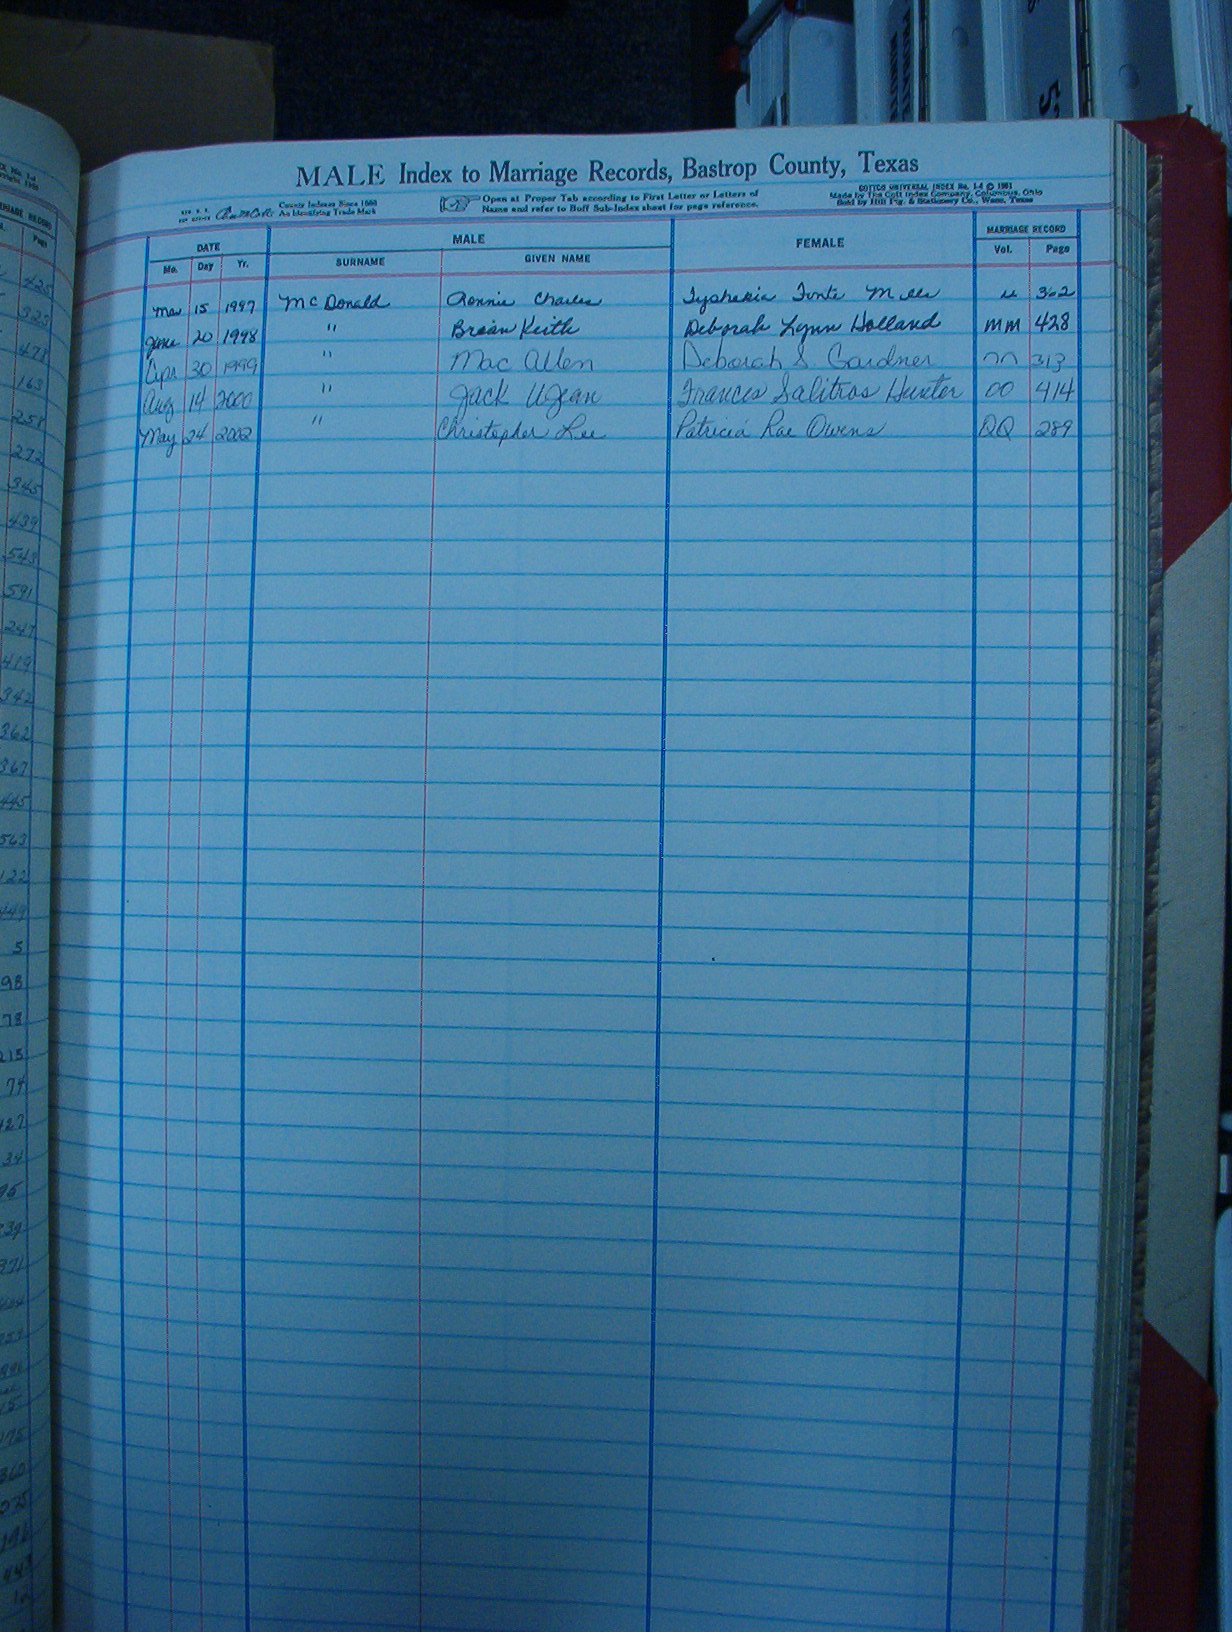 MALE Index to Marriage Records, Bastrop County, Texas
County Indexes Since 1888
An Identifying Trade Mark
Open at Proper Tab according to First Letter or Letters of
Name and refer to Buff Sub-Index sheet for page reference.
COTTCO UNIVERSAL INDEX No. 1-4 © 1981
Made by The Cott Index Company, Columbus, Ohio
Sold by Hill Ptg. & Stationery Co., Waco, Texas
DATE MALE FEMALE MARRIAGE RECORD
Mo. Day Yr. SURNAME GIVEN NAME Vol. Page
15 1997 McDonald Ronnie Charles 362
June 20 1998 " Brian Keith Deborah Lynn Holland MM 428
Apr 30 1999 " Mac Allen Deborah S Gardner NN 313
Aug 14 2000 " Jack Frances Salitros Hunter OO 414
May 24 2002 " Christopher Lee Patricia Rae Owens QQ 289
RIAGE RECORD
Page
323
478
163
258
272
345
439
543
591
247
419
342
362
367
445
563
122
449
5
98
78
215
74
427
34